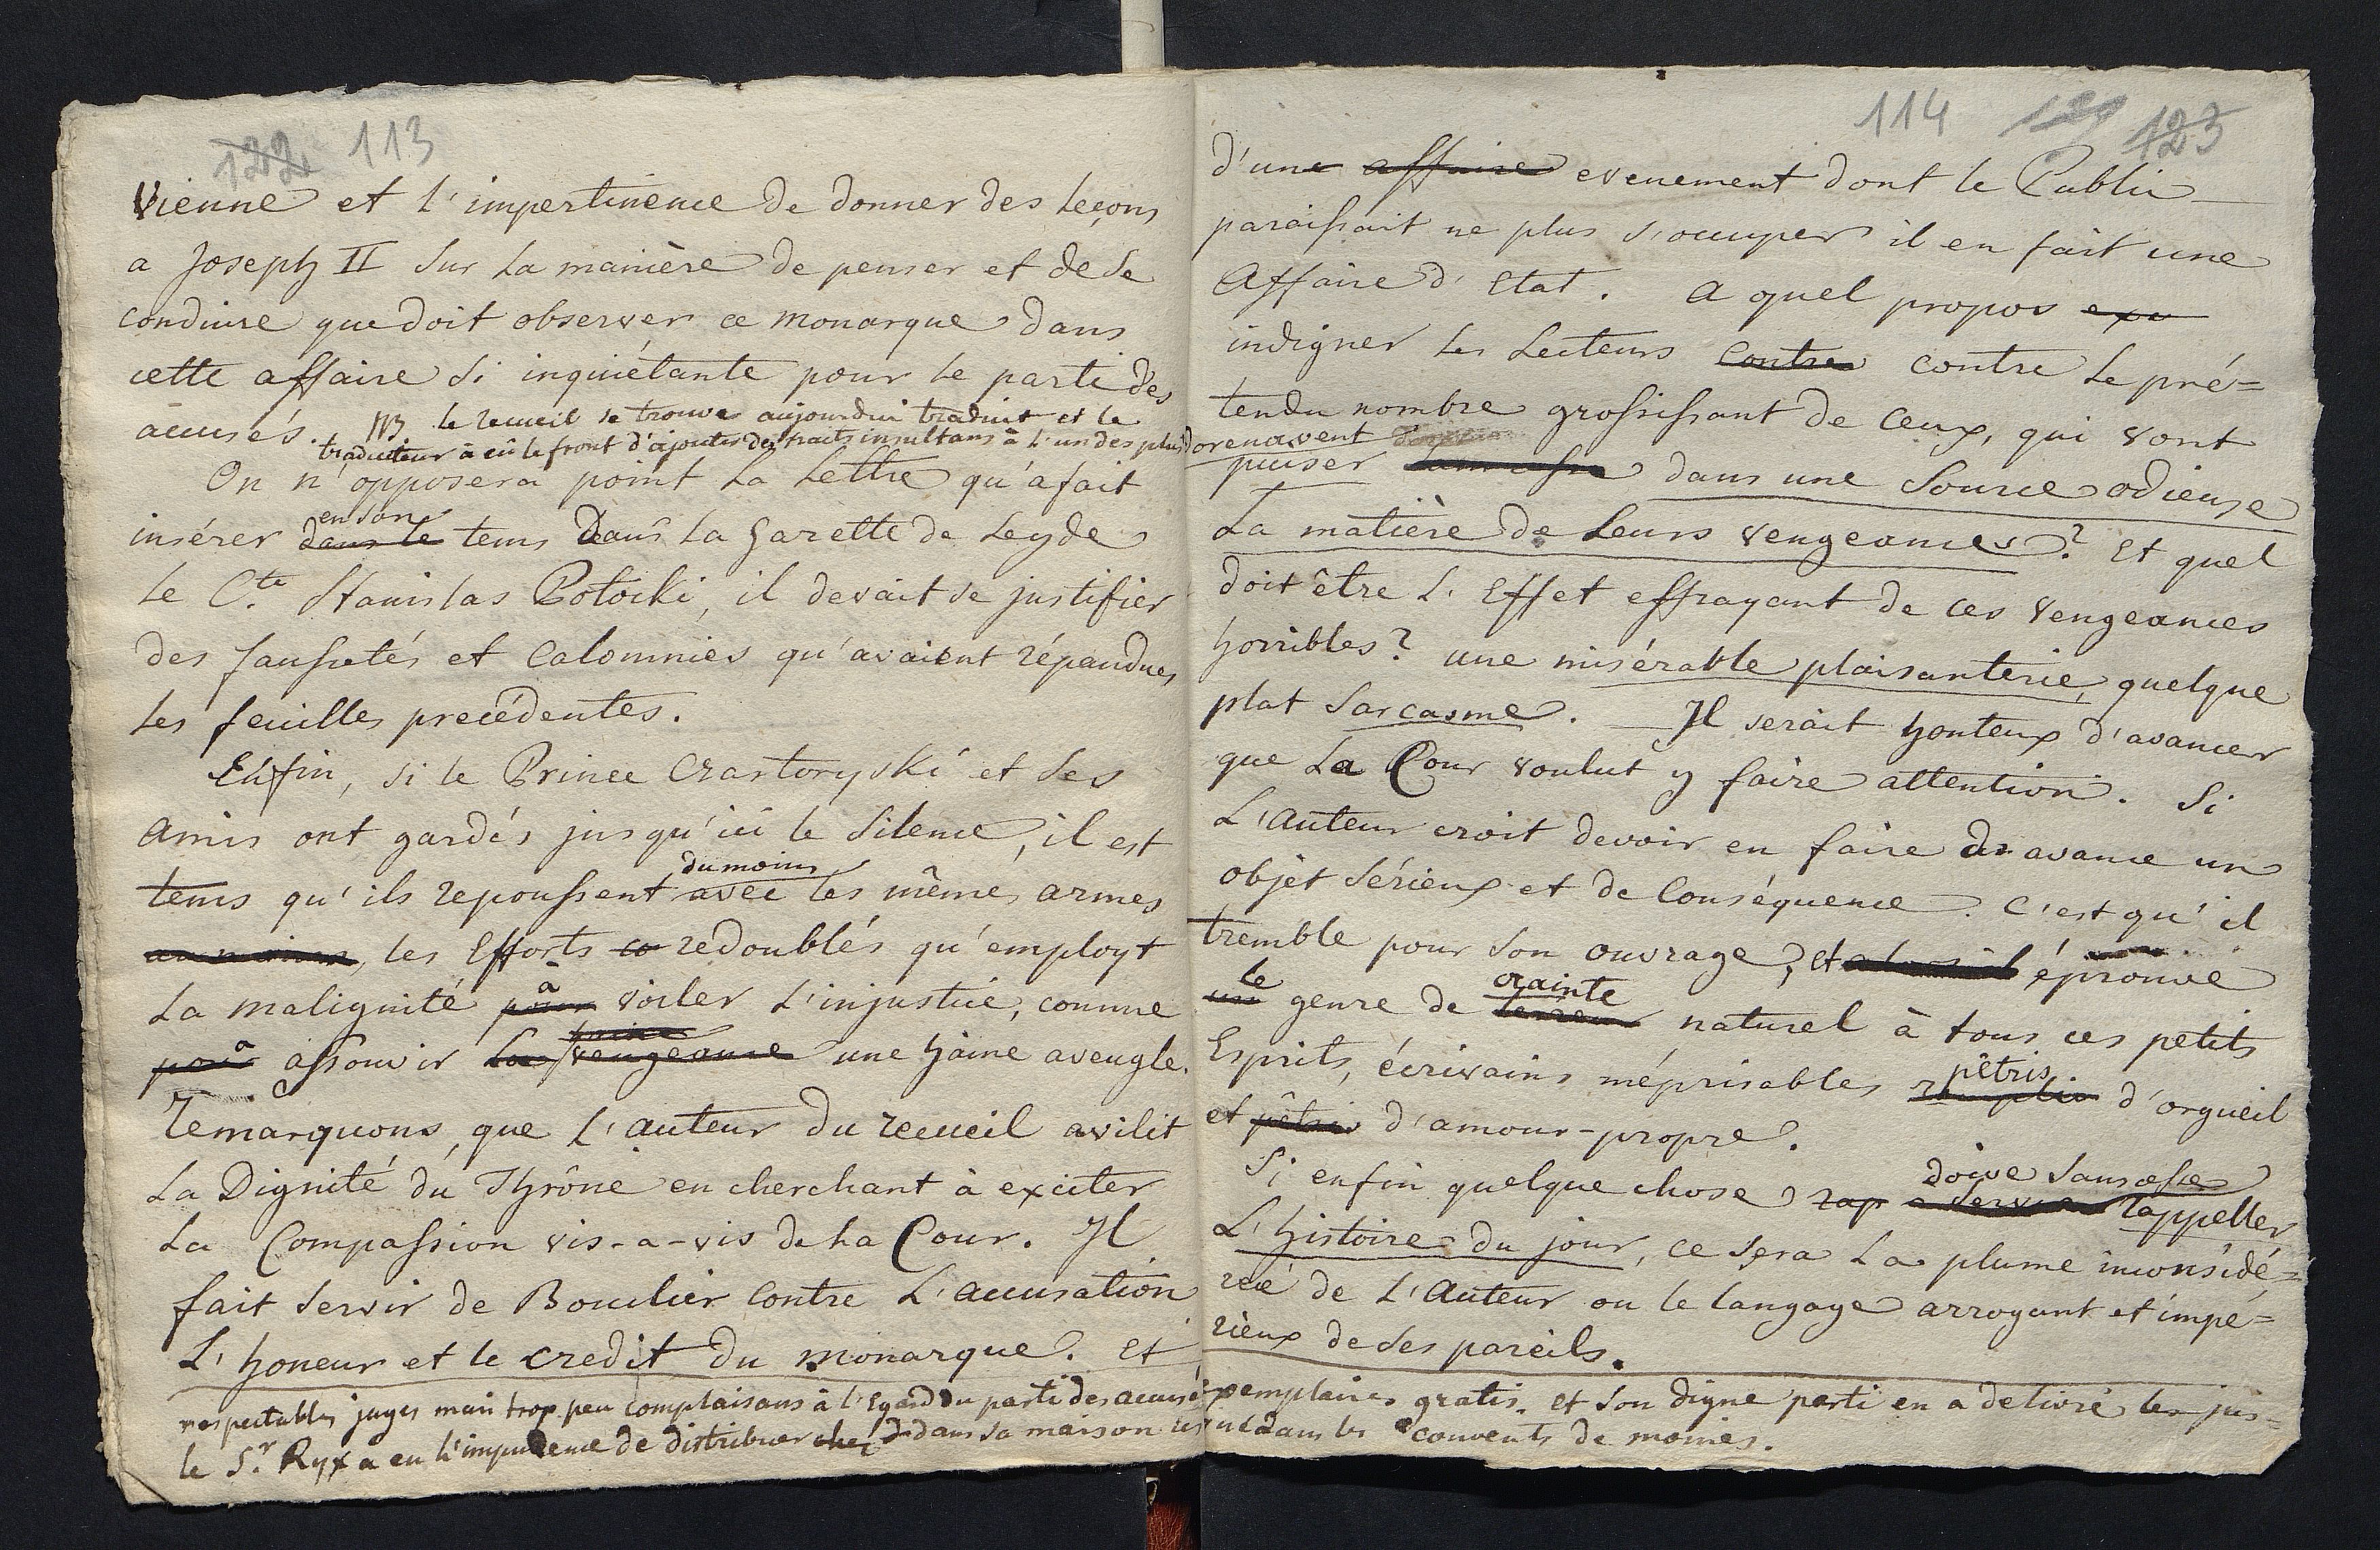 122 113
Vienne et l'impertinence de donner des leçons
a Joseph II sur la manière de penser et de se
conduire que doit observer ce monarque dans
cette affaire si inquiétante pour le parti des
accusés. NB le recueil se trouve aujourdui traduit et le
traducteur à eû le front d'ajouter des traits insultans à l'un des plus
On n'opposera point la lettre qu'a fait
en son
insérer dans le tems Dans la Gazette de Leyde
le Cte Stanislas Potocki, il devait se justifier
des faussetés et calomnies qu'avaient répandues
les feuilles precédentes.
Enfin, si le Prince Czartoryski et ses
amis ont gardés jusqu'ici le silence, il est
du moins
tems qu'ils repoussent avec les mêmes armes
au moins, les Efforts co redoublés qu'employt
à
la malignité pour voiler l'injustice, comme
à haine
pour assouvir la vengeance une haine aveugle.
Remarquons, que l'auteur du recueil avilit
la Dignité du Thrône en cherchant à exciter
la Compassion vis-a-vis de la Cour. Il
fait servir de Bouclier contre l'accusation
l'honeur et le credit du monarque. Et
respectables juges mais trop peu complaisans à l'Egard du parti des accusés
le Sr Ryx a eu l'impudence de distribuer chez dans sa maison des
114 123
d'une affaire evenement dont le Public
paraissait ne plus s'occuper il en fait une
Affaire d'Etat. A quel propos exc
indigner les Lecteurs contre contre le pré=
tendu nombre grossissant de ceux, qui vont
dorenavent
puiser dans une source odieuse
la matière de leurs vengeances? Et quel
doit être l'Effet effrayant de ces vengeances
horribles? une misérable plaisanterie, quelque
plat sarcasme. — Il serait honteux d'avancer
que la Cour voulut y faire attention. Si
l'auteur croit devoir en faire d'avance un
objêt sérieux et de conséquence. C'est qu'il
tremble pour son ouvrage, et éprouve
le crainte
un genre de terreur naturel à tous ces petits
Esprits, écrivains méprisables
pêtris
remplis d'orgueil
et pêtris d'amour-propre.
doive sans cesse
Si enfin quelque chose rap a servir rappeller
l'histoire du jour, ce sera la plume inconsidé=
reé de l'Auteur ou le langage arrogant et impé=
rieux de ses pareils.
exemplaires gratis. et son digne parti en a delivré les jus=
que dans les couvents de moines.